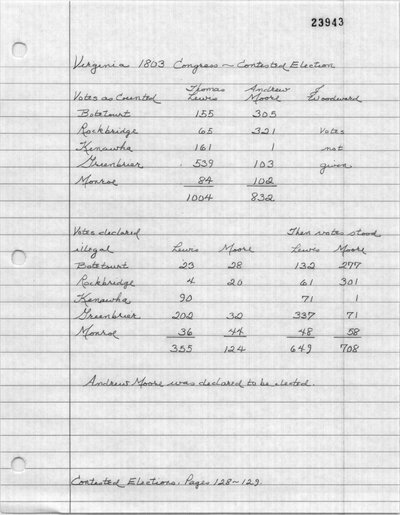 23943
Virginia 1803 Congress ~ Contested Election
Thomas Andrew J
Votes as Counted Lewis Moore Woodward
Botetourt 155 305
Rockbridge 65 321 Votes
Kanawha 161 1 not
Greenbrier 539 103 given
Monroe 84 102
1004 832
Votes declared Then votes stood
illegal Lewis Moore Lewis Moore
Botetourt 23 28 132 277
Rockbridge 4 20 61 301
Kanawha 90 71 1
Greenbrier 202 32 337 71
Monroe 36 44 48 58
355 124 649 708
Andrew Moore was declared to be elected.
Contested Elections, Pages 128~129.